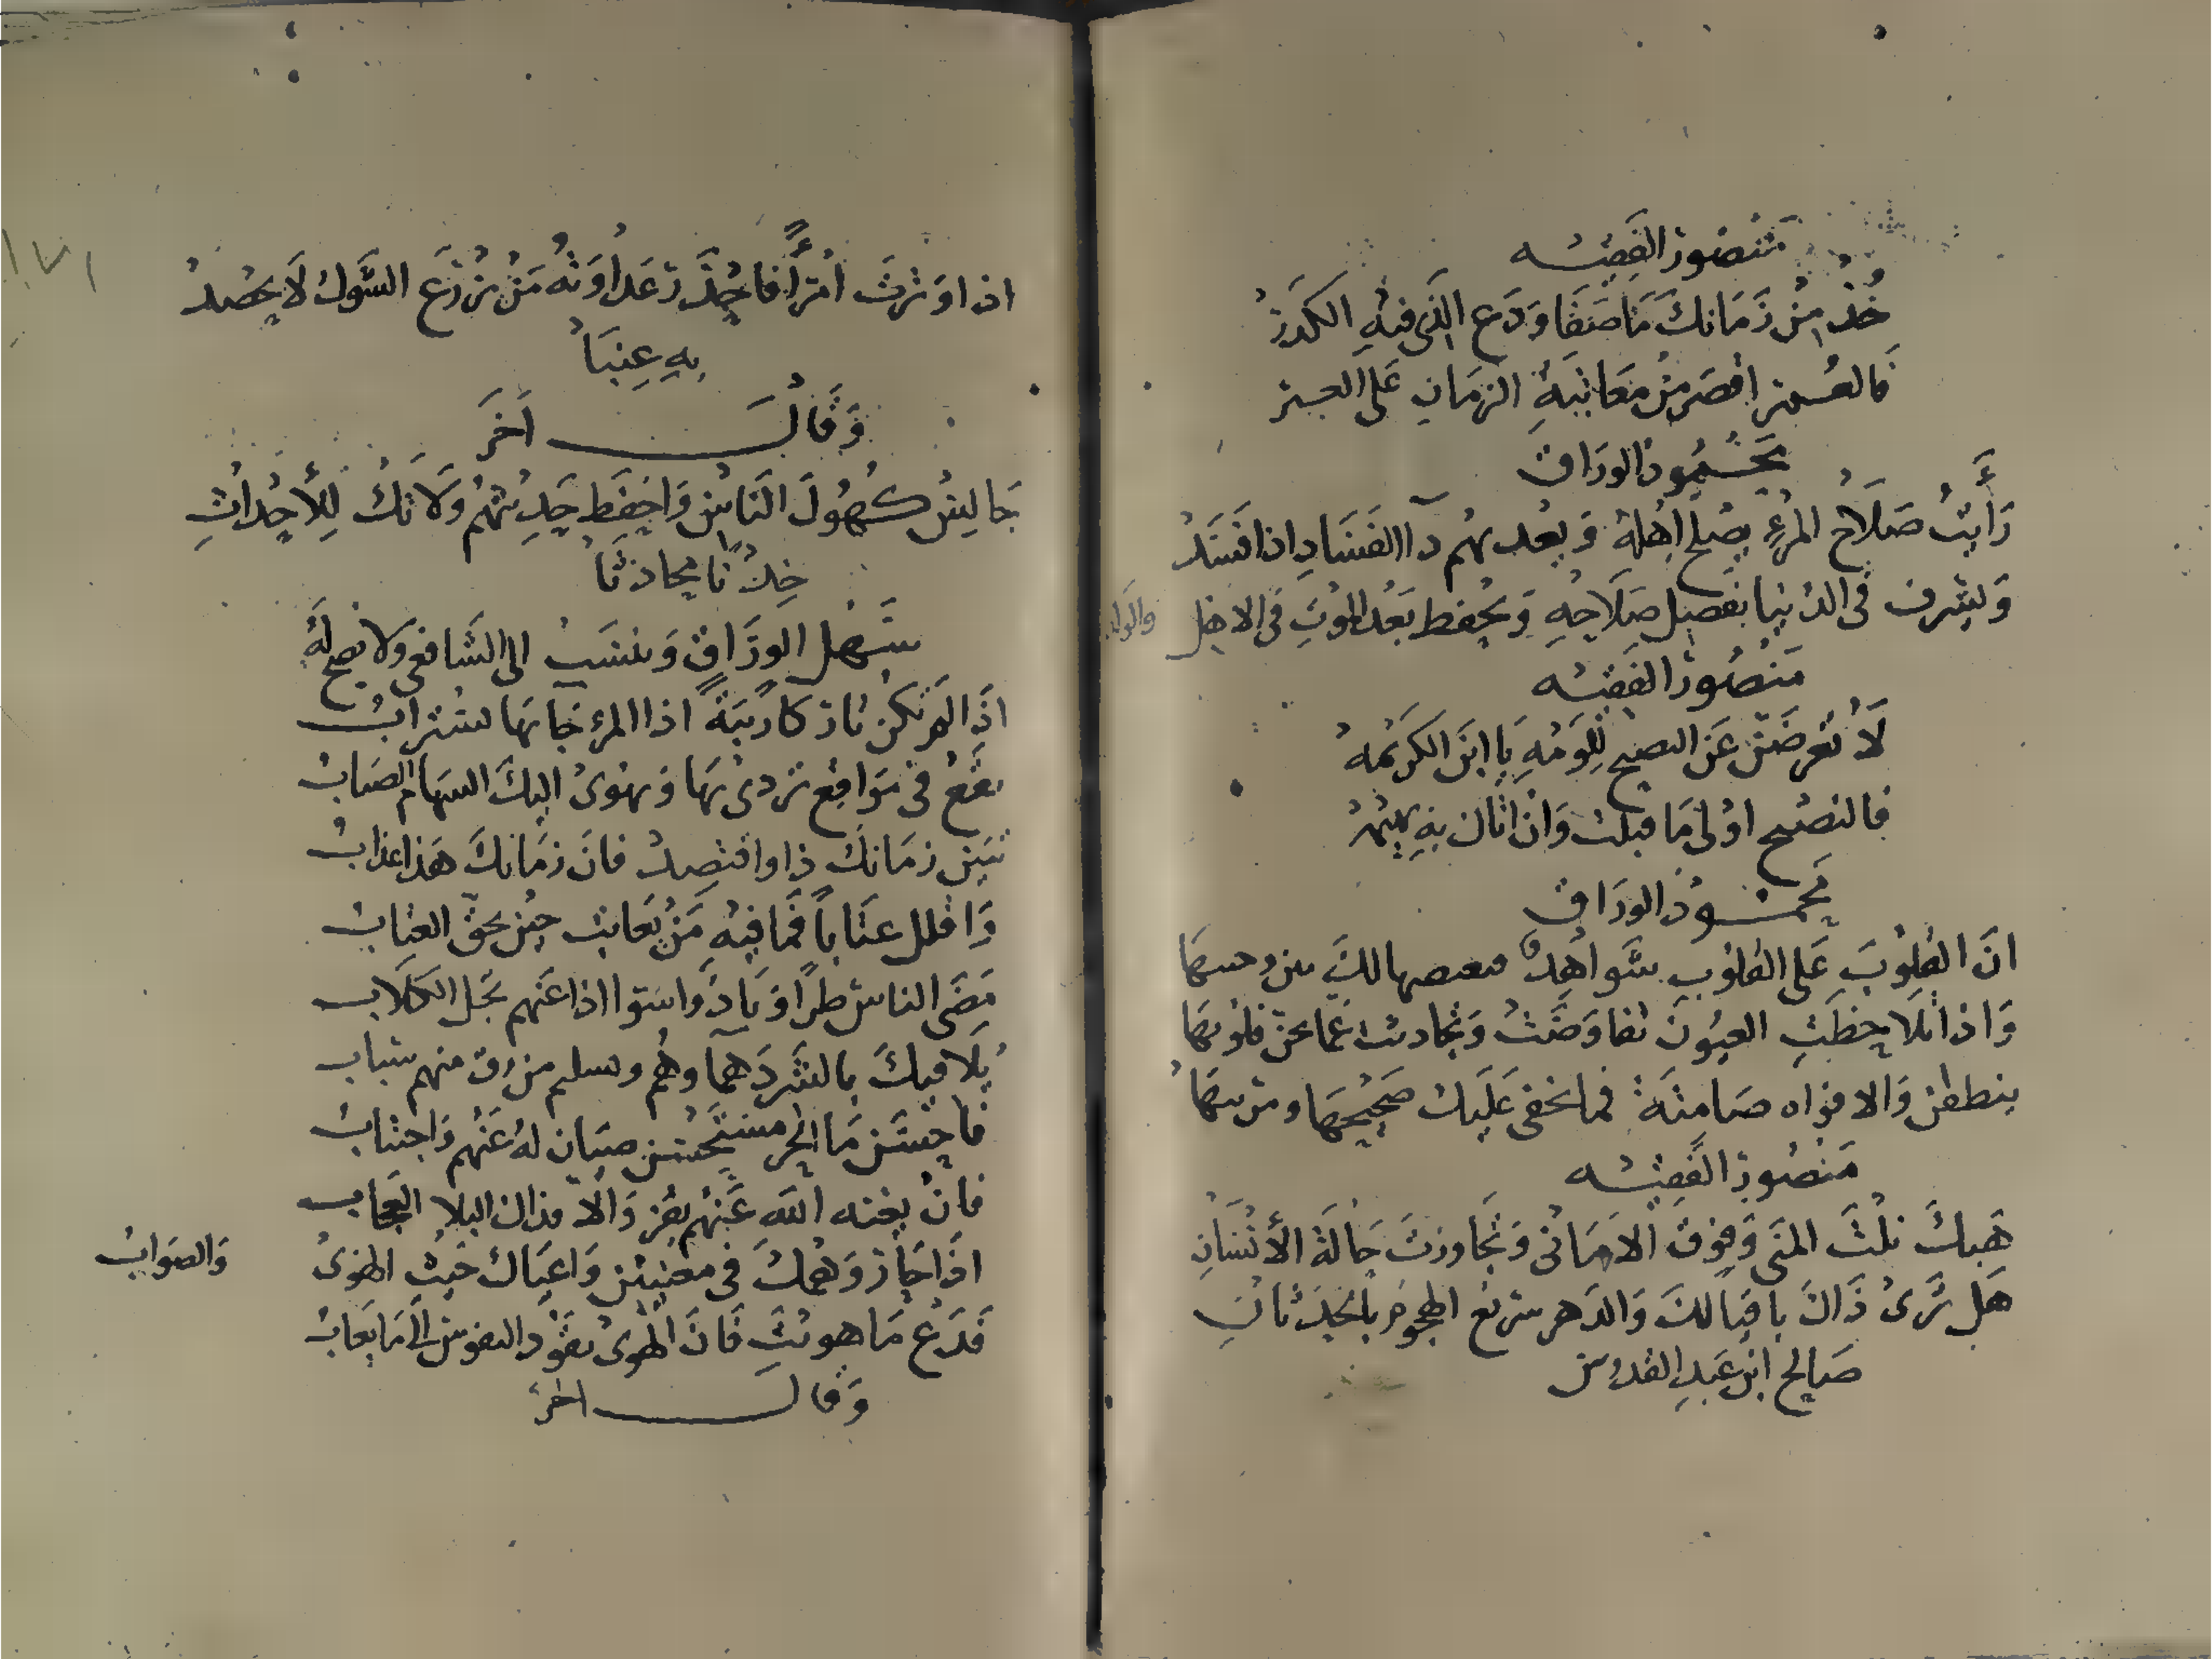 منصور الفقيه
خُذْ مِنْ زَمَانِكَ مَا صَفَا وَدَعِ الَّذِي فِيهِ الكَدَرْ
فالعمر اقصر من معاتبةِ الزمانِ عَلى العبر
محمود الوراق
رَأَيتُ صَلَاحَ المرْءِ يصْلح اهْلهُ وَيعْديهم دآ الفَسَادِ اذا فَسَدْ
وَيشرف فى الدنيا بفضل صلَاحِهِ وَيُحفظ بَعْد الموْتِ فى الاهل والولد
مَنصُور الفقيه
لَا تُعْرِضَنّ عَن النصيح لِلَوْمُهِ يَا ابنَ الكَريمهْ
فالنصح اولى مَا قبلت وَان اتاك به بهيمهْ
محمود الوراق
انَ القلوبَ عَلى القلوب شَواهِدٌ
وَاذا تلَاحظتِ العيُونُ تفاوَضَتْ وَتحادثت عَما تجن قلوبهَا
ينطقن وَالافواه صَامتة فما يخفى عَليك صَحِيحهَا ومريبهَا
مَنصُور الفقيه
هَبكَ نلْتَ المنَى وَفوقَ الامَانى وَتجَاوزتَ حَالَة الأنسَانِ
هَل تَرىْ ذَاكَ باقياً لكَ وَالدَهر سَريع الهجومِ بالحدَثانِ
صَالح ابن عَبد القدوس
اذا وَترتَ امْرَأً فاحْذَرْ عَدَاوَتهُ مَنْ يَزْرَعِ الشَّوكَ لَا يَحْصدْ
بِهِ عِنَبَا
وَقالَ اَخَر
جَالِسْ كُهُولَ النَاسِ وَاحْفَظ حَدِيثهُم وَلَا تكُ لِلأحْدَاثِ
خِدْنًا محادثا
سَهل الورَّاق وَينسَب الى الشَافعى ولا يصح لَهُ
اذَا لم تكن تاركا رِيبَةً اذا المرء جَابهَا يستراب
تقع فى مَوَاقِع تردى بهَا وَتهوىْ اليكَ السهَام الصيَابْ
تبين زمَانكَ ذا واقتصِد فانَ زمَانكَ هَذا عذابْ
وَاقلل عتَاباً فمَا فيهِ مَنْ يُعَاتب حين يحق العتاب
مَضَى الناسْ طراً وَبادُوا سَوا اذا عَنهم بجل الكلاب
يُلَاقيكَ بالبشر دَهمآوهُم وتسليم من رق منهم سباب
فاحسَن مَا الحر مستحسن صيان لهُ عَنهُم وَاجتنابْ
فانْ يغنه اللَه عَنهُم يفز وَالا فذاك البلا العجَاب
اذَا حَارَ وَهْمكَ فى معنيين وَاعيَاك حَيث الهوىْ وَالصوَابْ
فَدَعْ مَا هويتَ فَانَ الهوىْ يقوْد النفوس الىَ مَا يعَابْ
وَقالَ اخر
١٧١